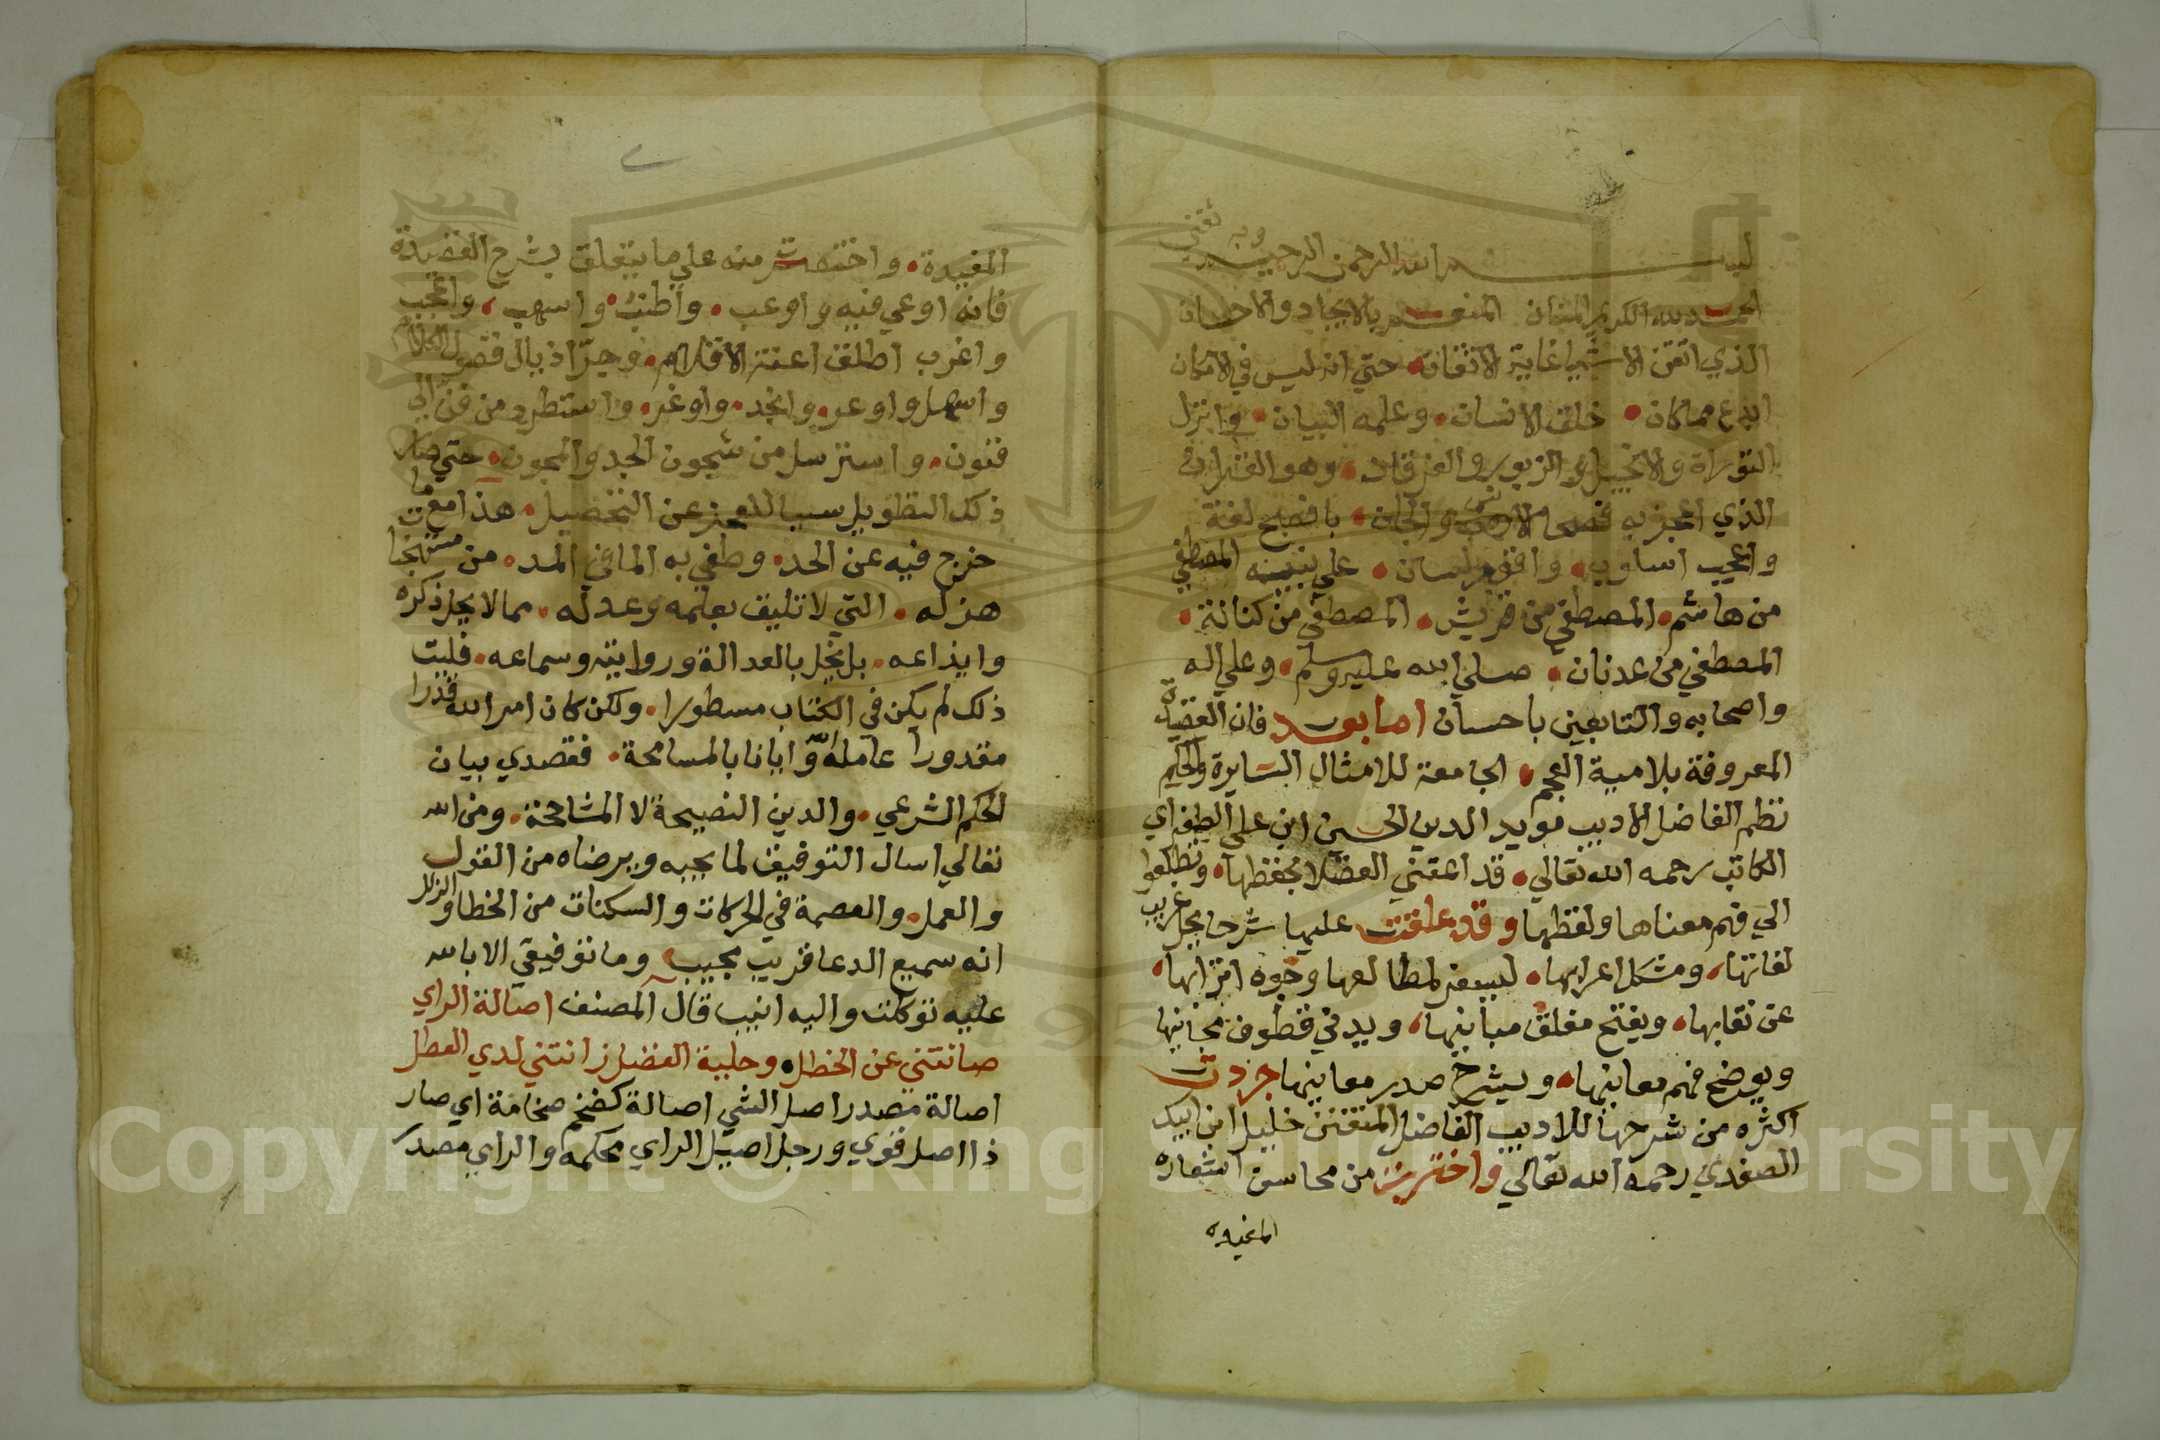 بسم الله الرحمن الرحيم وبه ثقتي
الحمد لله الكريم المنان المنعم بالايجاد والاحسان
الذي اتقن الاشيا غاية الاتقان حتي انه ليس في الامكان
ابدع مما كان خلق الانسان وعلمه البيان وانزل
التوراة والانجيل والزبور والفرقان وهو القران
الذي اعجز به فصحا الانس والجان بافصح لغة
واعجب اسلوب وافهم لسان علي نبيه المصطفي
من هاشم المصطفي من قريش المصطفي من كنانة
المصطفي من عدنان صلي الله عليه وسلم وعلي اله
واصحابه والتابعين باحسان اما بعد فان القصيدة
المعروفة بلامية العجم الجامعة للامثال السايرة والحكم
نظم الفاضل الاديب مويد الدين الحسين ابن علي الطغراي
الكاتب رحمه الله تعالي قد اعتني الفضلا بحفظها وتطلعوا
الي فهم معناها ولفظها وقد علقت عليها شرحا يحل غريب
لغاتها ومشكل اعرابها ليسفر لمطالعها وجوه اترابها
عن نقابها ويفتح مغلق مبانيها ويدني قطوف مجانيها
ويوضح فهم معانيها ويشرح صدر معانيها جردت
اكثره من شرحها للاديب الفاضل المتفنن خليل ابن ايبك
الصفدي رحمه الله تعالي واخترت من محاسن اشعاره
المفيده
المفيدة واختصرت منه علي ما يتعلق بشرح القصيدة
فانه اوعي فيه واوعب واطنب واسهب واعجب
واغرب اطلق اعنة الاقلام وجر اذيال فضول الكلام
واسهل واوعر وانجد واوغر واستطرد من فن الي
فنون واسترسل من شجون الجد والمجون حتي صار
ذلك التطويل سببا للعجز عن التحصيل هذا مع ما
خرج فيه عن الحد وطغي به الما في المد من مستهجنات
هزله التي لا تليق بعلمه وعدله مما لا يحل ذكره
وايداعه بل يخل بالعدالة وروايته وسماعه فليت
ذلك لم يكن في الكتاب مسطورا ولكن كان امر الله قدرا
مقدورا عامله الله وايانا بالمسامحة فقصدي بيان
الحكم الشرعي والدين النصيحة لا المشاححة ومن الله
تعالي اسال التوفيق لما يحبه ويرضاه من القول
والعمل والعصمة في الحركات والسكنات من الخطا والزلل
انه سميع الدعا قريب مجيب وما توفيقي الا بالله
عليه توكلت واليه انيب قال المصنف اصالة الراي
صانتني عن الخطل وحلية الفضل زانتني لدي العطل
اصالة مصدر اصل الشي اصالة كضخم ضخامة اي صار
ذا اصل قوي ورجل اصيل الراي محكمه والراي مصدر
Copyright © King Saud University